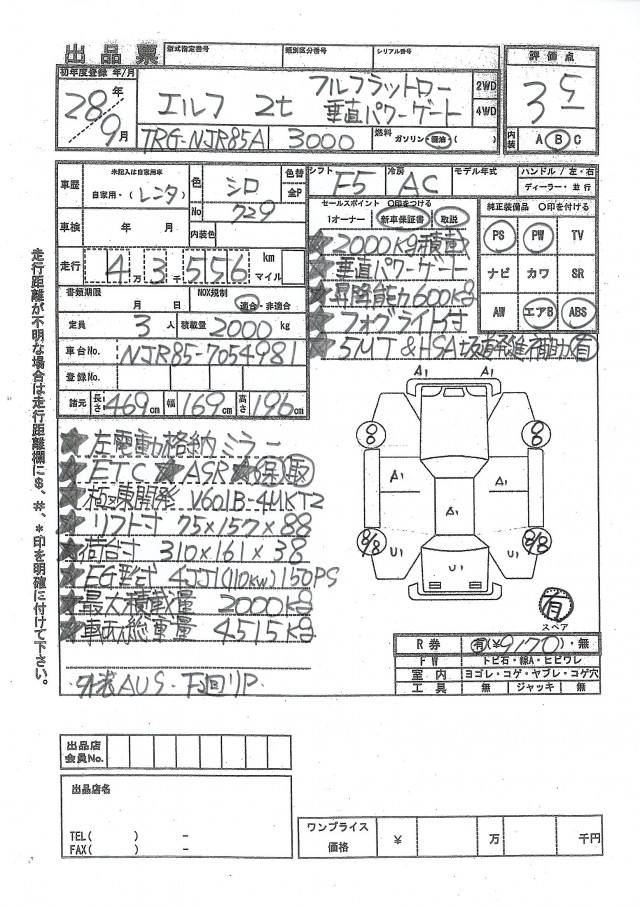 出品票
型式指定番号 類別区分番号 シリアル番号
評価点
初年度登録 年/月
28年
9月
エルフ 2t フルフラットロー
垂直パワーゲート
2WD
4WD
3 5
TRG-NJR85A 3000 燃料 ガソリン・軽油・( )
内装 A B C
車歴 未記入は自家用車
自家用・(レンタ)
色 シロ 色替
全P
No 729
車検 年 月 内装色
走行 4万3千556 km
マイル
書類期限 月 日 NOX規制 適合・非適合
定員 3人 積載量 2000 kg
車台No. NJR85-7054981
登録No.
諸元 長さ 469cm 幅 169cm 高さ 196cm
シフト F5 冷房 AC モデル年式 ハンドル/左・右
ディーラー・並行
セールスポイント ○印をつける
1オーナー 新車保証書 取説
★2000kg積載
★垂直パワーゲート
★昇降能力600kg
★フォグライト付
★5MT&HSA坂道発進補助有
純正装備品 ○印を付ける
PS PW TV
ナビ カワ SR
AW エアB ABS
走行距離が不明な場合は走行距離欄に$、#、*印を明確に付けて下さい。
★左電動格納ミラー
★ETC★ASR★保取
★極東開発 V601B-4MKT2
★リフト寸 75×157×88
★荷台寸 310×161×38
★EG型式 4JJ1(110KW)150PS
★最大積載量 2000kg
★車両総重量 4515kg
外装AUS・下回リP
A1 A1
8/8 8/8
A1 A1
A1
8/8 U1 U1 8/8
U1
有
スペア
R券 有(¥9170)・無
FW トビ石・線A・ヒビワレ
室内 ヨゴレ・コゲ・ヤブレ・コゲ穴
工具 無 ジャッキ 無
出品店
会員No.
出品店名
TEL( ) -
FAX( ) -
ワンプライス
価格 ¥ 万 千円